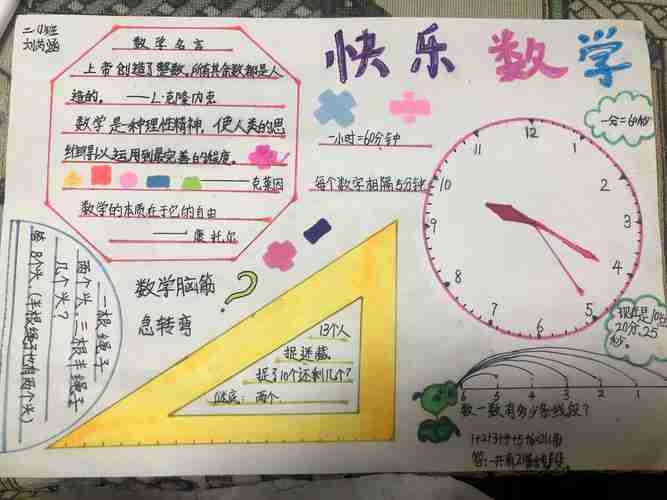 二(1)班
快乐数学
数学名言
上帝创造了整数,所有其余数都是人
造的。——L·克隆内克
数学是一种理性精神,使人类的思
维得以运用到最完善的程度。
——克莱因
数学的本质在于它的自由
——康托尔
一小时=60分钟
每个数字相隔5分钟
一分=60秒
12
1
2
3
4
5
6
7
8
9
10
11
现在是10时
20分25
秒。
数学脑筋
急转弯
?
一根绳子
两个头,三根半绳子
几个头?
答:8个头,(半根绳子也有两个头)
13个人
捉迷藏
捉了10个还剩几个?
谜底:两个
6 5 4 3 2 1
数一数有多少条线段?
1+2+3+4+5+6=21(条)
答:一共有21条线段